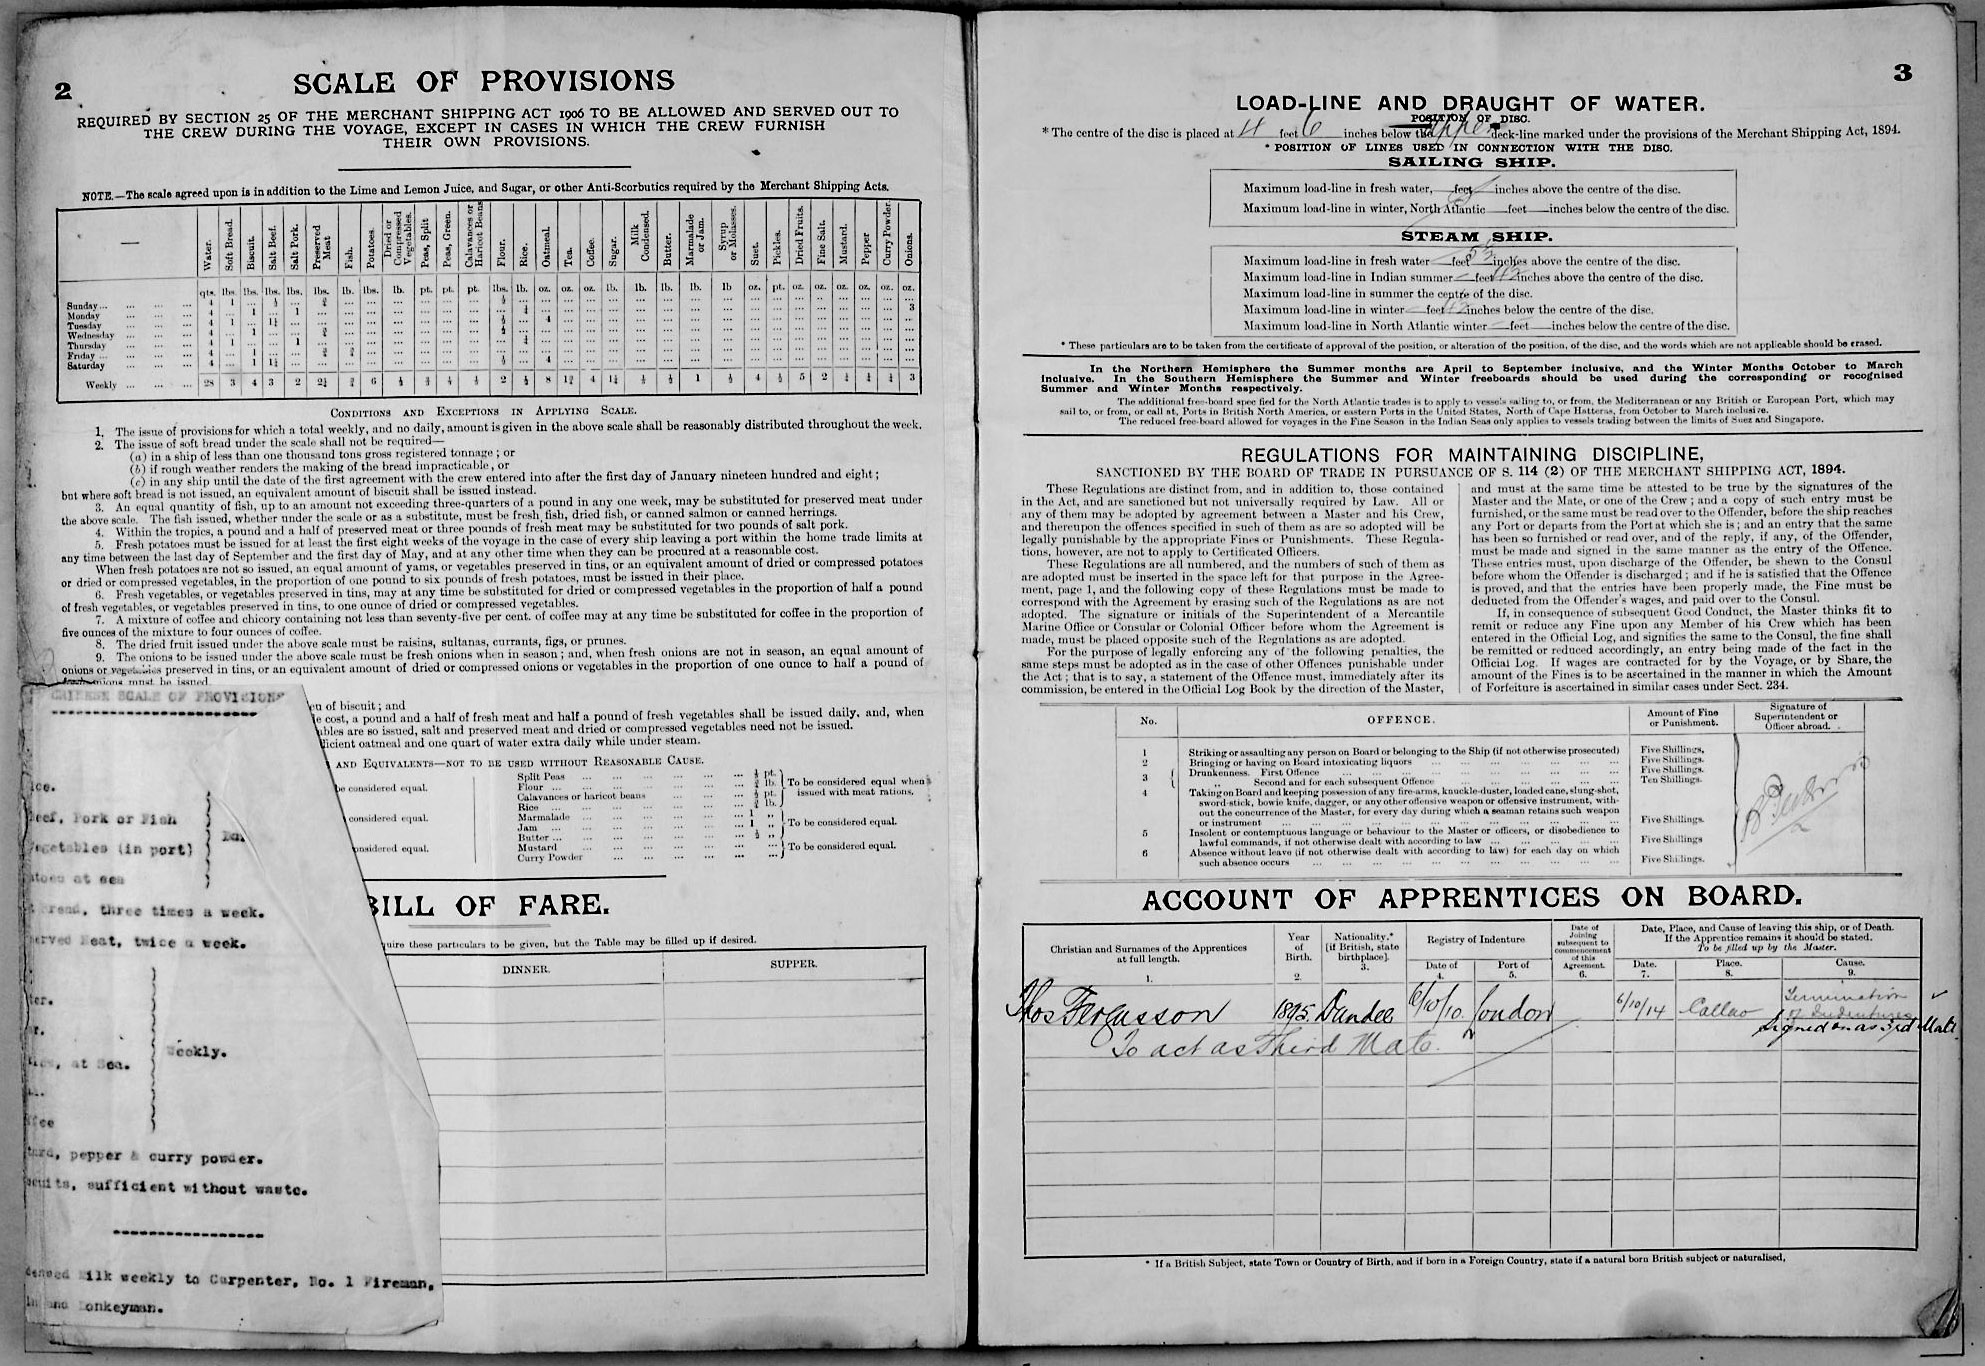 2
SCALE OF PROVISIONS
REQUIRED BY SECTION 25 OF THE MERCHANT SHIPPING ACT 1906 TO BE ALLOWED AND SERVED OUT TO
THE CREW DURING THE VOYAGE, EXCEPT IN CASES IN WHICH THE CREW FURNISH
THEIR OWN PROVISIONS.
NOTE.—The scale agreed upon is in addition to the Lime and Lemon Juice, and Sugar, or other Anti-Scorbutics required by the Merchant Shipping Acts.
— Water. Soft Bread. Biscuit. Salt Beef. Salt Pork. Preserved Meat Fish. Potatoes. Dried or Compressed Vegetables. Peas, Split Peas, Green. Calavances or Haricot Beans Flour. Rice. Oatmeal. Tea. Coffee. Sugar. Milk Condensed. Butter. Marmalade or Jam. Syrup or Molasses. Suet. Pickles. Dried Fruits. Fine Salt. Mustard. Pepper Curry Powder. Onions.
qts. lbs. lbs. lbs. lbs. lbs. lb. lbs. lb. pt. pt. pt. lbs. lb. oz. oz. oz. lb. lb. lb. lb. lb oz. pt. oz. oz. oz. oz. oz. oz.
Sunday... ... ... 4 1 ... ½ ... ¾
Monday ... ... ... 4 ... 1 ... 1
Tuesday ... ... ... 4 1 ... 1¼
Wednesday ... ... ... 4 ... 1 ... ... ¾
Thursday ... ... ... 4 1 ... ... 1
Friday ... ... ... 4 ... 1 ... ... ¾
Saturday ... ... ... 4 ... 1 1¼
Weekly ... ... ... 28 3 4 3 2 2¼ ¾ 6 ½ ⅔ ⅓ ⅓ 2 ½ 8 1¾ 4 1¼ ⅓ ½ 1 ½ 4 ½ 5 2 ¼ ¼ ¼ 3
CONDITIONS AND EXCEPTIONS IN APPLYING SCALE.
1. The issue of provisions for which a total weekly, and no daily, amount is given in the above scale shall be reasonably distributed throughout the week.
2. The issue of soft bread under the scale shall not be required—
(a) in a ship of less than one thousand tons gross registered tonnage; or
(b) if rough weather renders the making of the bread impracticable, or
(c) in any ship until the date of the first agreement with the crew entered into after the first day of January nineteen hundred and eight;
but where soft bread is not issued, an equivalent amount of biscuit shall be issued instead.
3. An equal quantity of fish, up to an amount not exceeding three-quarters of a pound in any one week, may be substituted for preserved meat under
the above scale. The fish issued, whether under the scale or as a substitute, must be fresh fish, dried fish, or canned salmon or canned herrings.
4. Within the tropics, a pound and a half of preserved meat or three pounds of fresh meat may be substituted for two pounds of salt pork.
5. Fresh potatoes must be issued for at least the first eight weeks of the voyage in the case of every ship leaving a port within the home trade limits at
any time between the last day of September and the first day of May, and at any other time when they can be procured at a reasonable cost.
When fresh potatoes are not so issued, an equal amount of yams, or vegetables preserved in tins, or an equivalent amount of dried or compressed potatoes
or dried or compressed vegetables, in the proportion of one pound to six pounds of fresh potatoes, must be issued in their place.
6. Fresh vegetables, or vegetables preserved in tins, may at any time be substituted for dried or compressed vegetables in the proportion of half a pound
of fresh vegetables, or vegetables preserved in tins, to one ounce of dried or compressed vegetables.
7. A mixture of coffee and chicory containing not less than seventy-five per cent. of coffee may at any time be substituted for coffee in the proportion of
five ounces of the mixture to four ounces of coffee.
8. The dried fruit issued under the above scale must be raisins, sultanas, currants, figs, or prunes.
9. The onions to be issued under the above scale must be fresh onions when in season; and, when fresh onions are not in season, an equal amount of
onions or vegetables preserved in tins, or an equivalent amount of dried or compressed onions or vegetables in the proportion of one ounce to half a pound of
fresh onions must be issued
eu of biscuit; and
le cost, a pound and a half of fresh meat and half a pound of fresh vegetables shall be issued daily, and, when
ables are so issued, salt and preserved meat and dried or compressed vegetables need not be issued.
ficient oatmeal and one quart of water extra daily while under steam.
AND EQUIVALENTS—NOT TO BE USED WITHOUT REASONABLE CAUSE.
be considered equal.
considered equal.
onsidered equal.
Split Peas ... ⅓ pt.
Flour ... ½ lb.
Calavances or haricot beans ... ⅓ pt.
Rice ... ½ lb.
To be considered equal when issued with meat rations.
Marmalade ... 1 „
Jam ... 1 „
Butter ... ½ „
To be considered equal.
Mustard ...
Curry Powder ...
To be considered equal.
CHINESE SCALE OF PROVISIONS
ice.
Beef, Pork or Fish
Vegetables (in port)
atoes at sea
t Bread, three times a week.
served Meat, twice a week.
ter.
Weekly.
at Sea.
tard, pepper & curry powder.
scuits, sufficient without waste.
densed Milk weekly to Carpenter, No. 1 Fireman,
and Donkeyman.
BILL OF FARE.
quire these particulars to be given, but the Table may be filled up if desired.
DINNER. SUPPER.
3
LOAD-LINE AND DRAUGHT OF WATER.
POSITION OF DISC.
* The centre of the disc is placed at 4 feet 6 inches below the upper deck-line marked under the provisions of the Merchant Shipping Act, 1894.
* POSITION OF LINES USED IN CONNECTION WITH THE DISC.
SAILING SHIP.
Maximum load-line in fresh water, feet inches above the centre of the disc.
Maximum load-line in winter, North Atlantic feet inches below the centre of the disc.
STEAM SHIP.
Maximum load-line in fresh water feet 5½ inches above the centre of the disc.
Maximum load-line in Indian summer feet 4½ inches above the centre of the disc.
Maximum load-line in summer the centre of the disc.
Maximum load-line in winter feet 4½ inches below the centre of the disc.
Maximum load-line in North Atlantic winter feet inches below the centre of the disc.
* These particulars are to be taken from the certificate of approval of the position, or alteration of the position, of the disc, and the words which are not applicable should be erased.
In the Northern Hemisphere the Summer months are April to September inclusive, and the Winter Months October to March
inclusive. In the Southern Hemisphere the Summer and Winter freeboards should be used during the corresponding or recognised
Summer and Winter Months respectively.
The additional free-board specified for the North Atlantic trades is to apply to vessels sailing to, or from, the Mediterranean or any British or European Port, which may
sail to, or from, or call at, Ports in British North America, or eastern Ports in the United States, North of Cape Hatteras, from October to March inclusive.
The reduced free-board allowed for voyages in the Fine Season in the Indian Seas only applies to vessels trading between the limits of Suez and Singapore.
REGULATIONS FOR MAINTAINING DISCIPLINE,
SANCTIONED BY THE BOARD OF TRADE IN PURSUANCE OF S. 114 (2) OF THE MERCHANT SHIPPING ACT, 1894.
These Regulations are distinct from, and in addition to, those contained
in the Act, and are sanctioned but not universally required by Law. All or
any of them may be adopted by agreement between a Master and his Crew,
and thereupon the offences specified in such of them as are so adopted will be
legally punishable by the appropriate Fines or Punishments. These Regula-
tions, however, are not to apply to Certificated Officers.
These Regulations are all numbered, and the numbers of such of them as
are adopted must be inserted in the space left for that purpose in the Agree-
ment, page 1, and the following copy of these Regulations must be made to
correspond with the Agreement by erasing such of the Regulations as are not
adopted. The signature or initials of the Superintendent of a Mercantile
Marine Office or Consular or Colonial Officer before whom the Agreement is
made, must be placed opposite such of the Regulations as are adopted.
For the purpose of legally enforcing any of the following penalties, the
same steps must be adopted as in the case of other Offences punishable under
the Act; that is to say, a statement of the Offence must, immediately after its
commission, be entered in the Official Log Book by the direction of the Master,
and must at the same time be attested to be true by the signatures of the
Master and the Mate, or one of the Crew; and a copy of such entry must be
furnished, or the same must be read over to the Offender, before the ship reaches
any Port or departs from the Port at which she is; and an entry that the same
has been so furnished or read over, and of the reply, if any, of the Offender,
must be made and signed in the same manner as the entry of the Offence.
These entries must, upon discharge of the Offender, be shewn to the Consul
before whom the Offender is discharged; and if he is satisfied that the Offence
is proved, and that the entries have been properly made, the Fine must be
deducted from the Offender's wages, and paid over to the Consul.
If, in consequence of subsequent Good Conduct, the Master thinks fit to
remit or reduce any Fine upon any Member of his Crew which has been
entered in the Official Log, and signifies the same to the Consul, the fine shall
be remitted or reduced accordingly, an entry being made of the fact in the
Official Log. If wages are contracted for by the Voyage, or by Share, the
amount of the Fines is to be ascertained in the manner in which the Amount
of Forfeiture is ascertained in similar cases under Sect. 234.
No. OFFENCE. Amount of Fine or Punishment. Signature of Superintendent or Officer abroad.
1 Striking or assaulting any person on Board or belonging to the Ship (if not otherwise prosecuted) Five Shillings.
2 Bringing or having on Board intoxicating liquors ... Five Shillings.
3 Drunkenness. First Offence ... Five Shillings.
„ Second and for each subsequent Offence ... Ten Shillings.
4 Taking on Board and keeping possession of any fire-arms, knuckle-duster, loaded cane, slung-shot,
sword-stick, bowie knife, dagger, or any other offensive weapon or offensive instrument, with-
out the concurrence of the Master, for every day during which a seaman retains such weapon
or instrument ... Five Shillings.
5 Insolent or contemptuous language or behaviour to the Master or officers, or disobedience to
lawful commands, if not otherwise dealt with according to law ... Five Shillings
6 Absence without leave (if not otherwise dealt with according to law) for each day on which
such absence occurs ... Five Shillings.
ACCOUNT OF APPRENTICES ON BOARD.
Christian and Surnames of the Apprentices at full length. 1.
Year of Birth. 2.
Nationality.* [if British, state birthplace]. 3.
Registry of Indenture
Date of 4. Port of 5.
Date of Joining subsequent to commencement of this Agreement. 6.
Date, Place, and Cause of leaving this ship, or of Death.
If the Apprentice remains it should be stated.
To be filled up by the Master.
Date. 7. Place. 8. Cause. 9.
Thos Fergusson 1895. Dundee 6/10/10. London 6/10/14 Callao Termination of Indentures
Signed on as 3rd Mate
To act as Third Mate.
* If a British Subject, state Town or Country of Birth, and if born in a Foreign Country, state if a natural born British subject or naturalised,